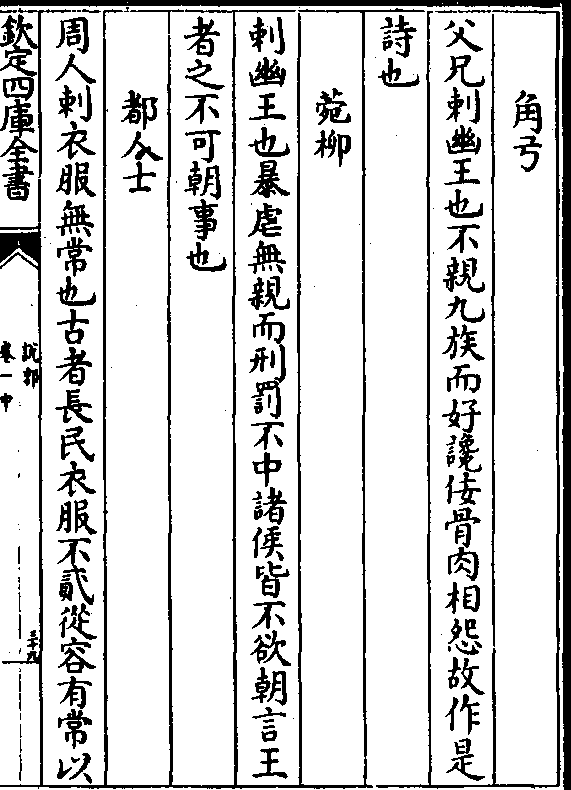 角弓
父兄刺幽王也不親九族而好讒佞骨肉相怨故作是
詩也
菀柳
刺幽王也暴虐無親而刑罰不中諸侯皆不欲朝言王
者之不可朝事也
都人士
周人刺衣服無常也古者長民衣服不貳從容有常以
欽定四庫全書
說郛
卷一中
三十九